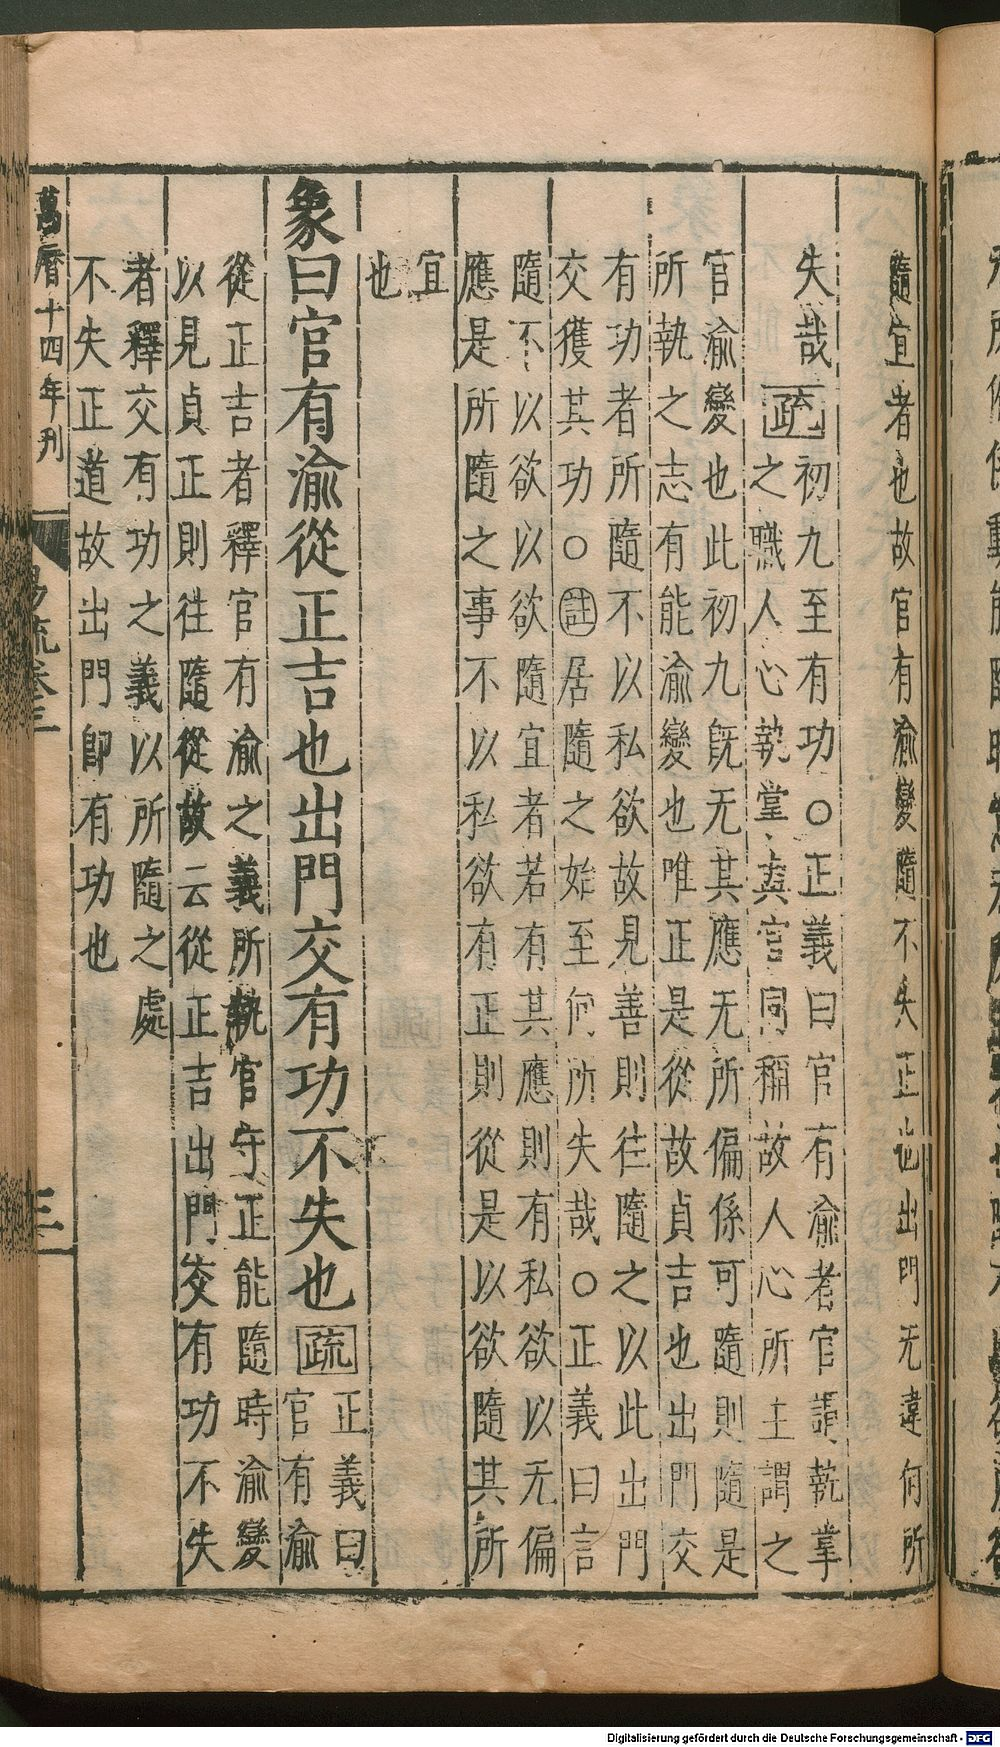 隨宜者也故官有渝變隨不失正也出門无違何所
失哉疏初九至有功○正義曰官有渝者官謂執掌
之職人心執掌與官同稱故人心所主謂之
官渝變也此初九旣无其應无所偏係可隨則隨是
所執之志有能渝變也唯正是從故貞吉也出門交
有功者所隨不以私欲故見善則往隨之以此出門
交獲其功○註居隨之始至何所失哉○正義曰言
隨不以欲以欲隨宜者若有其應則有私欲以无偏
應是所隨之事不以私欲有正則從是以欲隨其所
宜
也
象曰官有渝從正吉也出門交有功不失也疏
正義曰
官有渝
從正吉者釋官有渝之義所執官守正能隨時渝變
以見貞正則往隨從故云從正吉出門交有功不失
者釋交有功之義以所隨之處
不失正道故出門卽有功也
萬曆十四年刋
易疏卷三
三
Digitalisierung gefördert durch die Deutsche Forschungsgemeinschaft - DFG